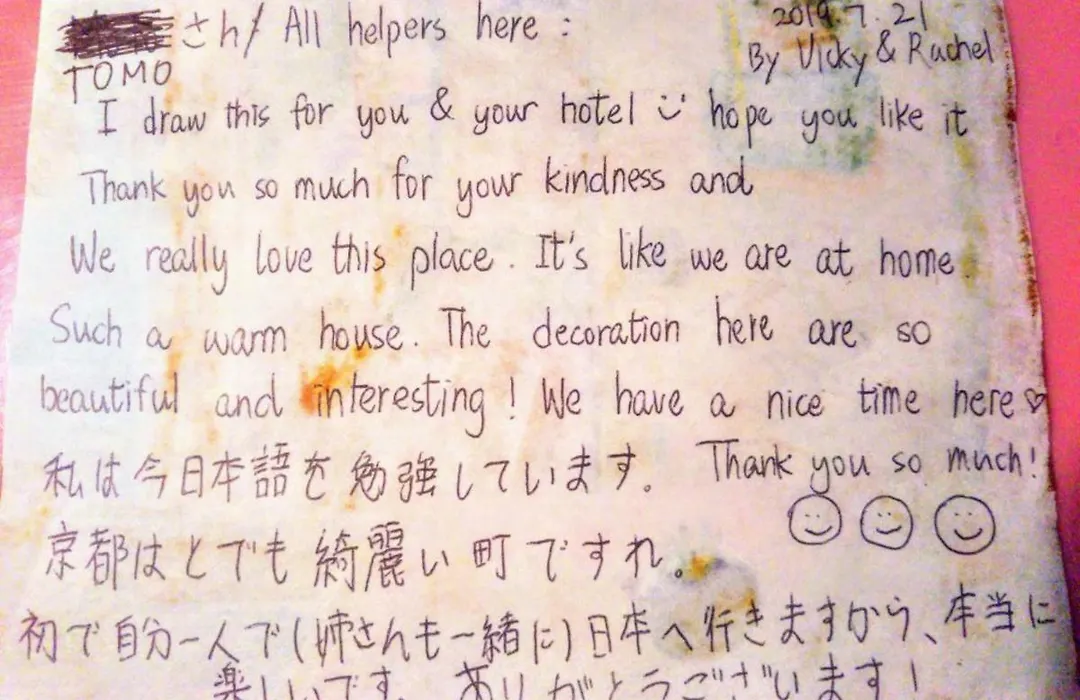 さん/ All helpers here :
2019.7.21
TOMO
By Vicky & Rachel
I draw this for you & your hotel hope you like it
Thank you so much for your kindness and
We really love this place. It's like we are at home.
Such a warm house. The decoration here are so
beautiful and interesting! We have a nice time here♡
私は今日本語を勉強しています。 Thank you so much!
京都はとでも綺麗い町ですれ。
初で自分一人で(姉さんも一緒に)日本へ行きますから、本当に
楽しいです。ありがとうございます!